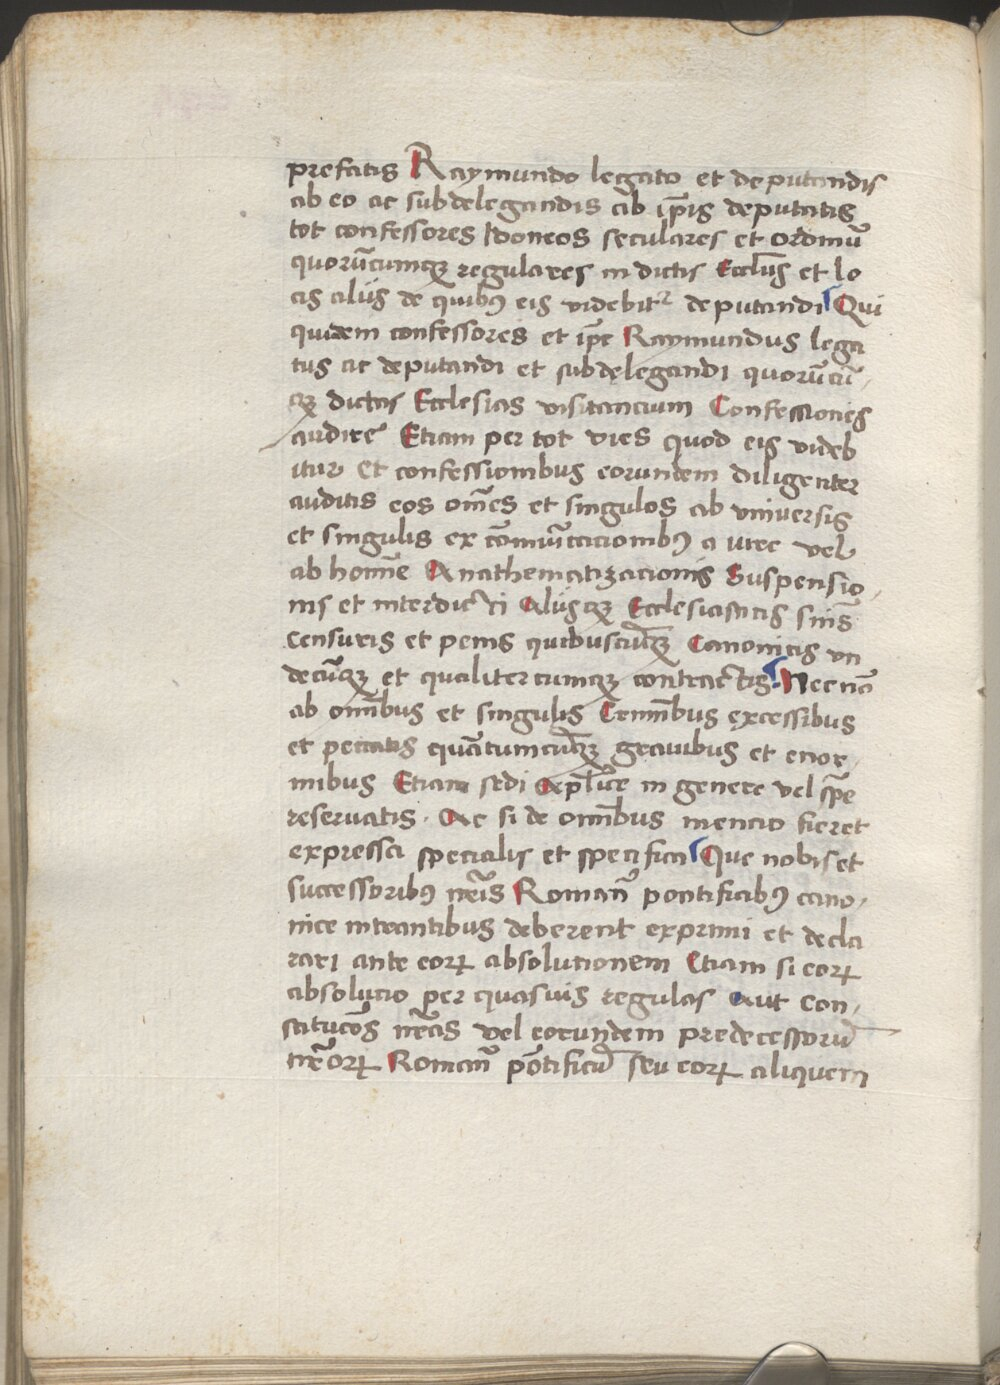 prefatis Raymundo legato et deputandis
ab eo ac subdelegandis ab ip̄is deputatis
tot confessores Idoneos seculares et ordinū
quorūcumqꝫ regulares in dictis Eccl̄iis et lo
cis aliis de quibꝯ eis videbitᷣ deputandi Qui
quidem confessores et ip̄e Raymundus lega
tus ac deputandi et subdelegandi quorūcū
qꝫ dictas Ecclesias visitancium Confessiones
audire Etiam per tot vies quod eis videb
itur Et confessionibus eorundem diligenter
auditis eos om̄es et singulos ab vniuersis
et singulis excōmuīcacionibꝯ a iure vel
ab homīe Anathematizacionis Suspensio
nis et interdicti Aliisqꝫ Ecclesiasticis sniīs
censuris et penis quibuscūqꝫ Canonicis vn
decūqꝫ et qualitercumqꝫ contractis Necnō
ab omībus et singulis Crimībus excessibus
et peccatis quātumcūqꝫ grauibus et enor
mibus Etiam sedi ap̄lice in genere vel sp̄e
reseruatis. Ac si de omībus mencio fieret
expressa specialis et specifica Que nobis et
successoribꝯ nr̄is Romanꝭ pontificibꝯ cano
nice intrantibus deberent exprimi et decla
rari ante eorꝝ absolutionem Etiam si eorꝝ
absolucio per quasuis regulas Aut con
stitucōes nr̄as vel eorundem predecessorū
nr̄orꝝ Romanꝭ pōtificū seu eorꝝ aliquem